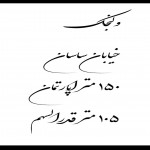 ونجنک
خیابان ساسان
۱۵۰ متر آپارتمان
۱۰۵ متر قدرالسهم